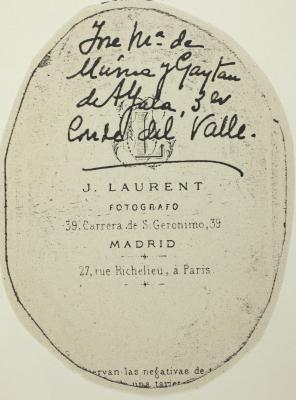 Jose Mª de
Múrua y Gaytan
de Ayala, 3er
Conde del Valle.
J. LAURENT
FOTOGRAFO
39, Carrera de S. Geronimo, 39
MADRID
27, rue Richelieu, à Paris
servan las negativas de
una tarjet